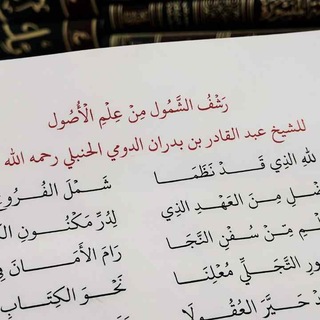 رَشْفُ الشَّمُولِ مِنْ عِلْمِ الْأُصُولِ
للشيخ عبد القادر بن بدران الدومي الحنبلي رحمه الله
لله الَّذِي قَدْ نَظَمَا شَمْلَ الْفُرُوعِ
مِنَ الْعَهْدِ الَّذِي لِدُرِّ مَكْنُونِ
مِنْ سُفْنِ النَّجَا رَامَ الْأَمَانَ فِي
التَّجَلِّي مُعْلِنَا نَحْوَ الْكِتَابِ
حَيَّرَ الْعُقُولَا